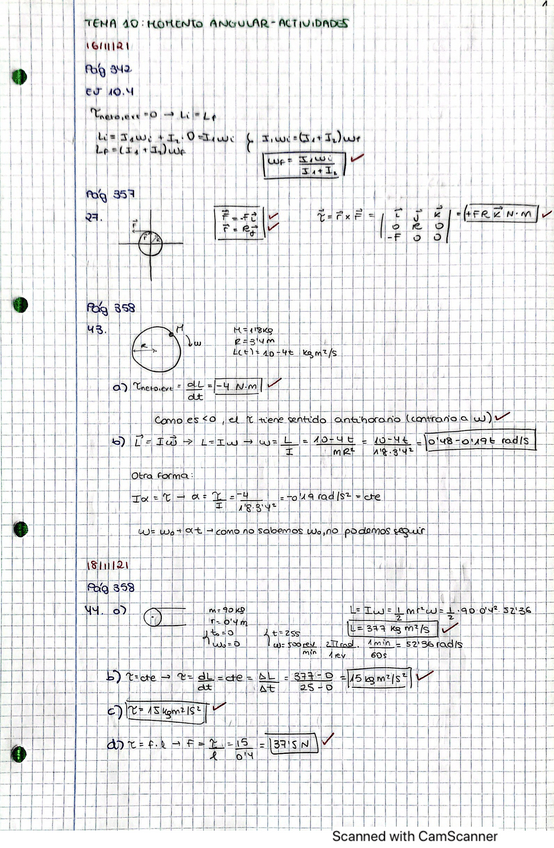 1
TEMA 10: MOMENTO ANGULAR - ACTIVIDADES
16/11/21
Pág 342
EJ 10.4
τneto,ext = 0 → Li = Lf
Li = I1ωi + I2 · 0 = I1ωi } I1ωi = (I1 + I2)ωf
Lf = (I1 + I2)ωf
ωf = I1ωi / (I1 + I2) ✓
Pág 357
27.
F⃗ = -F i⃗ ✓
r⃗ = R j⃗ ✓
τ⃗ = r⃗ x F⃗ = | i⃗ j⃗ k⃗ | = +FR k⃗ N·m ✓
0 R 0
-F 0 0
Pág 358
43.
M
R
ω
M = 1'8 kg
R = 3'4 m
L(t) = 10 - 4t kg m²/s
a) τneto,ext = dL/dt = -4 N·m ✓
Como es <0, el τ tiene sentido antihorario (contrario a ω) ✓
b) L⃗ = Iω⃗ → L = Iω → ω = L/I = (10 - 4t)/(mR²) = (10 - 4t)/(1'8·3'4²) = 0'48 - 0'19t rad/s
Otra forma:
Iα = τ → α = τ/I = -4/(1'8·3'4²) = -0'19 rad/s² = cte
ω = ω0 + αt → como no sabemos ω0, no podemos seguir
18/11/21
Pág 358
44. a)
m = 90 kg
r = 0'4 m
t0 = 0
ω0 = 0
t = 25 s
ω = 500 rev/min · 2π rad/1 rev · 1 min/60 s = 52'36 rad/s
L = Iω = 1/2 mr²ω = 1/2 · 90 · 0'4² · 52'36
L = 377 kg m²/s ✓
b) τ = cte → τ = dL/dt = cte = ΔL/Δt = (377 - 0)/(25 - 0) = 15 kg m²/s² ✓
c) τ = 15 kg m²/s² ✓
d) τ = F·l → F = τ/l = 15/0'4 = 37'5 N ✓
Scanned with CamScanner